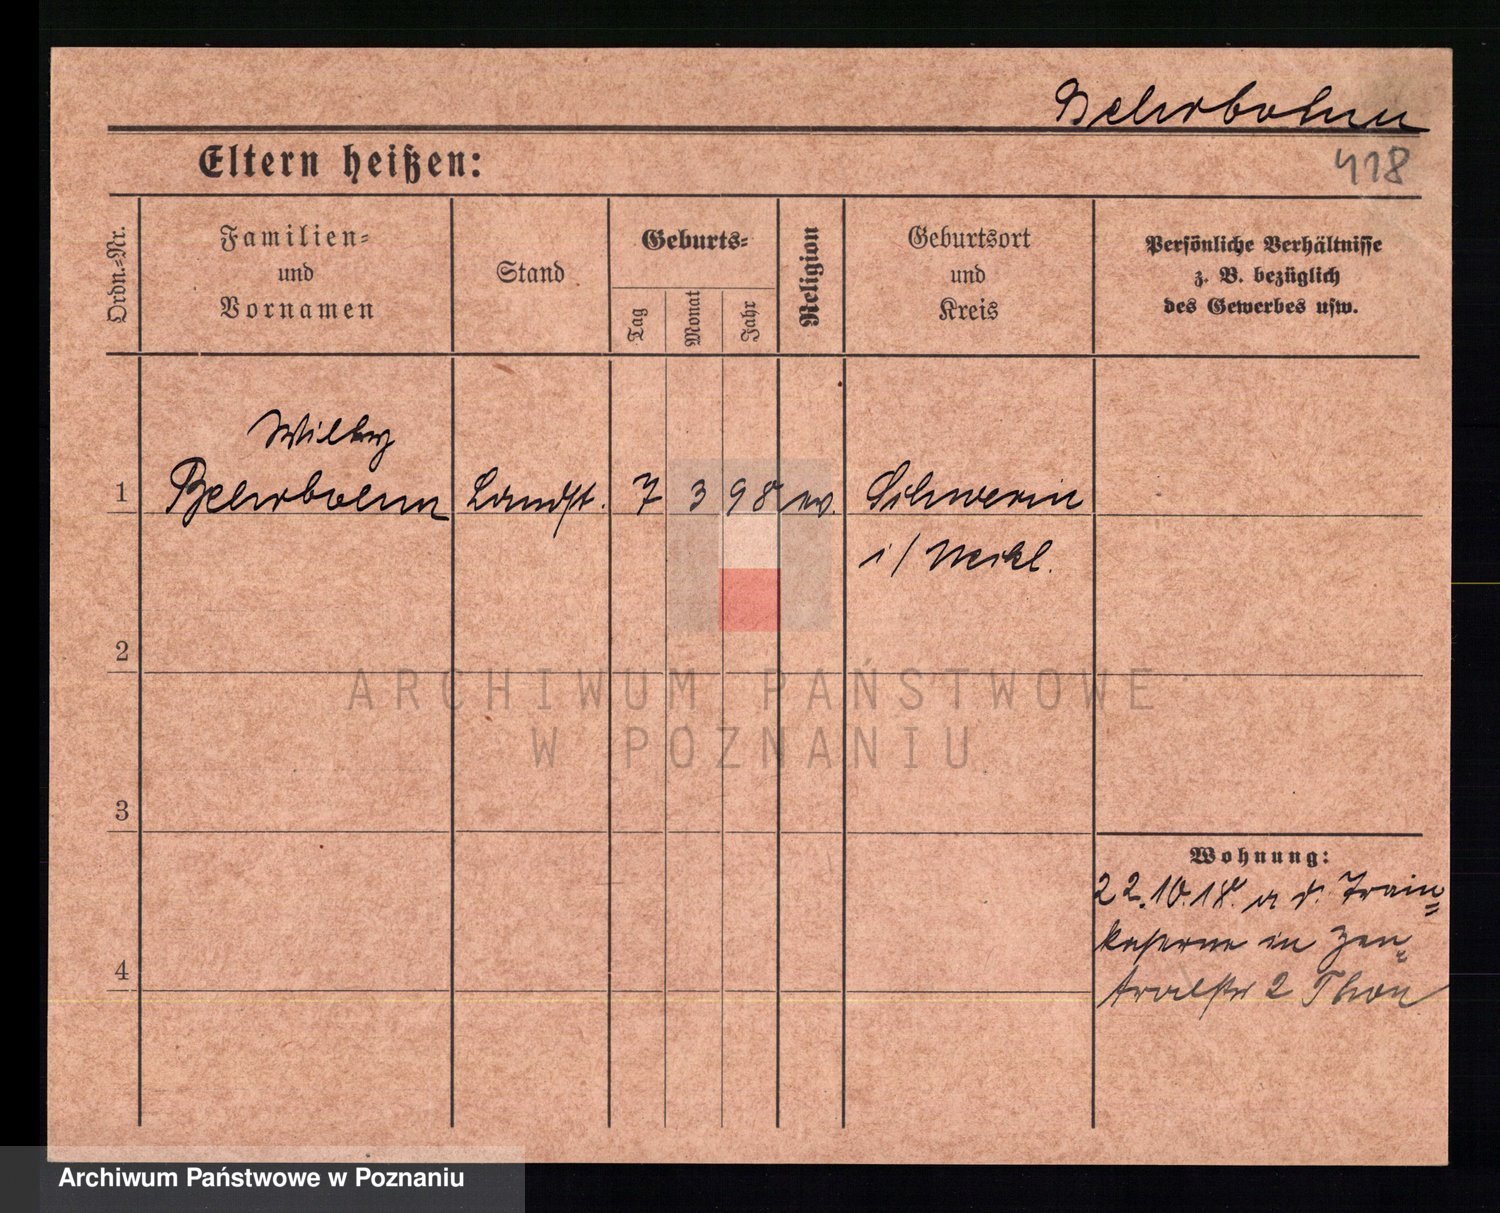 Behrbohm
418
Eltern heißen:
Ordn.-Nr.
Familien-
und
Vornamen
Stand
Geburts-
Tag
Monat
Jahr
Religion
Geburtsort
und
Kreis
Persönliche Verhältnisse
z. B. bezüglich
des Gewerbes usw.
Willy
1 Behrbohm Landst. 7 3 98 ev. Schwerin
i/Meckl.
2
ARCHIWUM PAŃSTWOWE
W POZNANIU
3
Wohnung:
22.10.18. a d. Train-
kaserne in Zen-
4
tralstr 2 Thorn
Archiwum Państwowe w Poznaniu